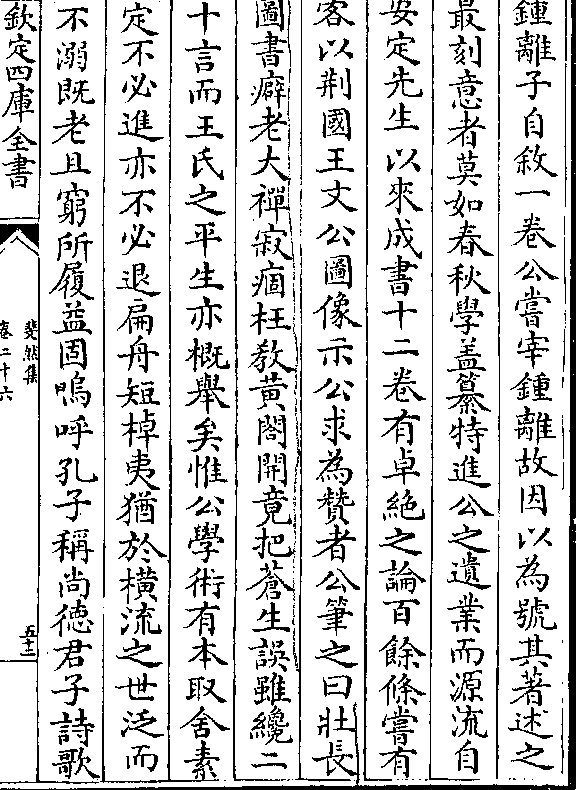 鍾離子自敘一卷公嘗宰鍾離故因以為號其著述之
最刻意者莫如春秋學蓋纂特進公之遺業而源流自
安定先生以來成書十二卷有卓絶之論百餘條嘗有
客以荆國王文公圖像示公求為贊者公筆之曰壯長
圖書癖老大禪寂痼枉教黃閣開竟把蒼生誤雖纔二
十言而王氏之平生亦概舉矣惟公學術有本取舍素
定不必進亦不必退扁舟短棹夷猶於横流之世泛而
不溺既老且窮所履益固嗚呼孔子稱尚德君子詩歌
欽定四庫全書
斐然集
卷二十六
五十二